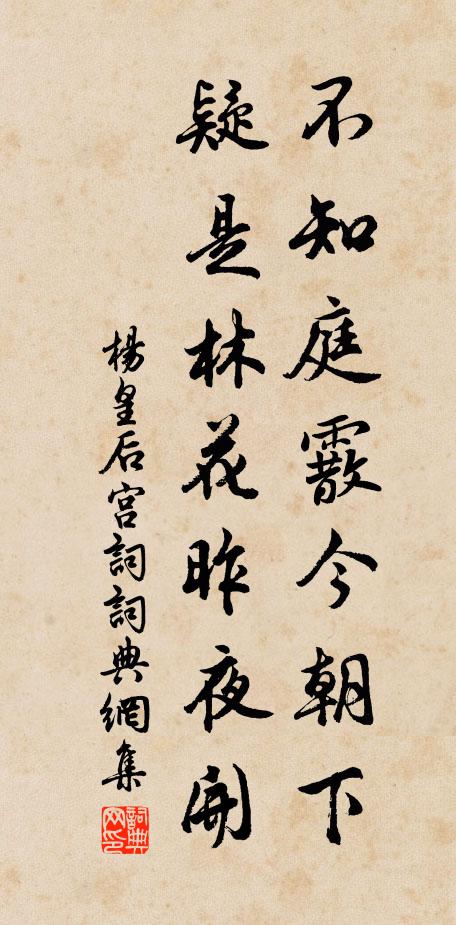 不知庭霰今朝下
疑是林花昨夜開
楊皇后宮詞詞典網集
詞典网印